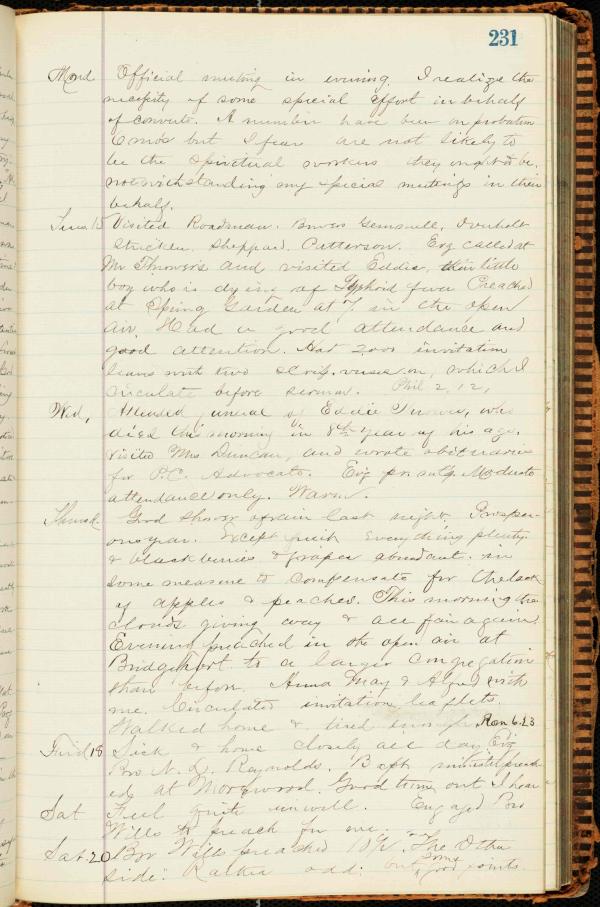 231
Mond Official meeting in evening. I realize the
necessity of some special effort in behalf
of converts. A number have been on probation
6 mos but I fear are not likely to
be the spiritual workers they ought to be,
notwithstanding my special meetings in their
behalf.
Tues 15 Visited Roadman. Bowers Overholt
Sheppard. Patterson. Evg called at
Mr Throwers and visited Eddie, their little
boy who is dying of Typhoid fever Preached
at Spring Garden at 7. in the open
air. Had a good attendance and
good attention. Had 2000 invitation
leaves with two scrip. verses on, which I
circulate before sermon. Phil 2, 12,
Wed, Attended funeral of Eddie Thrower, who
died this morning in 8th year of his age.
Visited Mrs Duncan, and wrote obituaries
for P.C. Advocate. Evg Moderate
attendance only. Warm.
Thursd. Good shower of rain last night. Prosper-
ous year. Except fruit everything plenty
& blackberries & grapes abundant. in
some measure to compensate for the lack
of apples & peaches. This morning the
clouds giving way & all fair again.
Evening preached in the open air at
Bridgeport to a larger congregation
than before. Anna May & with
me. Circulated invitation leaflets.
Walked home & tired enough Rom 6.23
Frid 18 Sick & home closely all day Evg
Bro N. D. Reynolds. Bapt minister preach-
ed at Morewood. Good turn out I hear
Sat Feel quite unwell. Engaged Bro
Wills to preach for me.
Sab. 20 Bro Wills preached 10½. "The Other
side." Rather odd; but some good points.